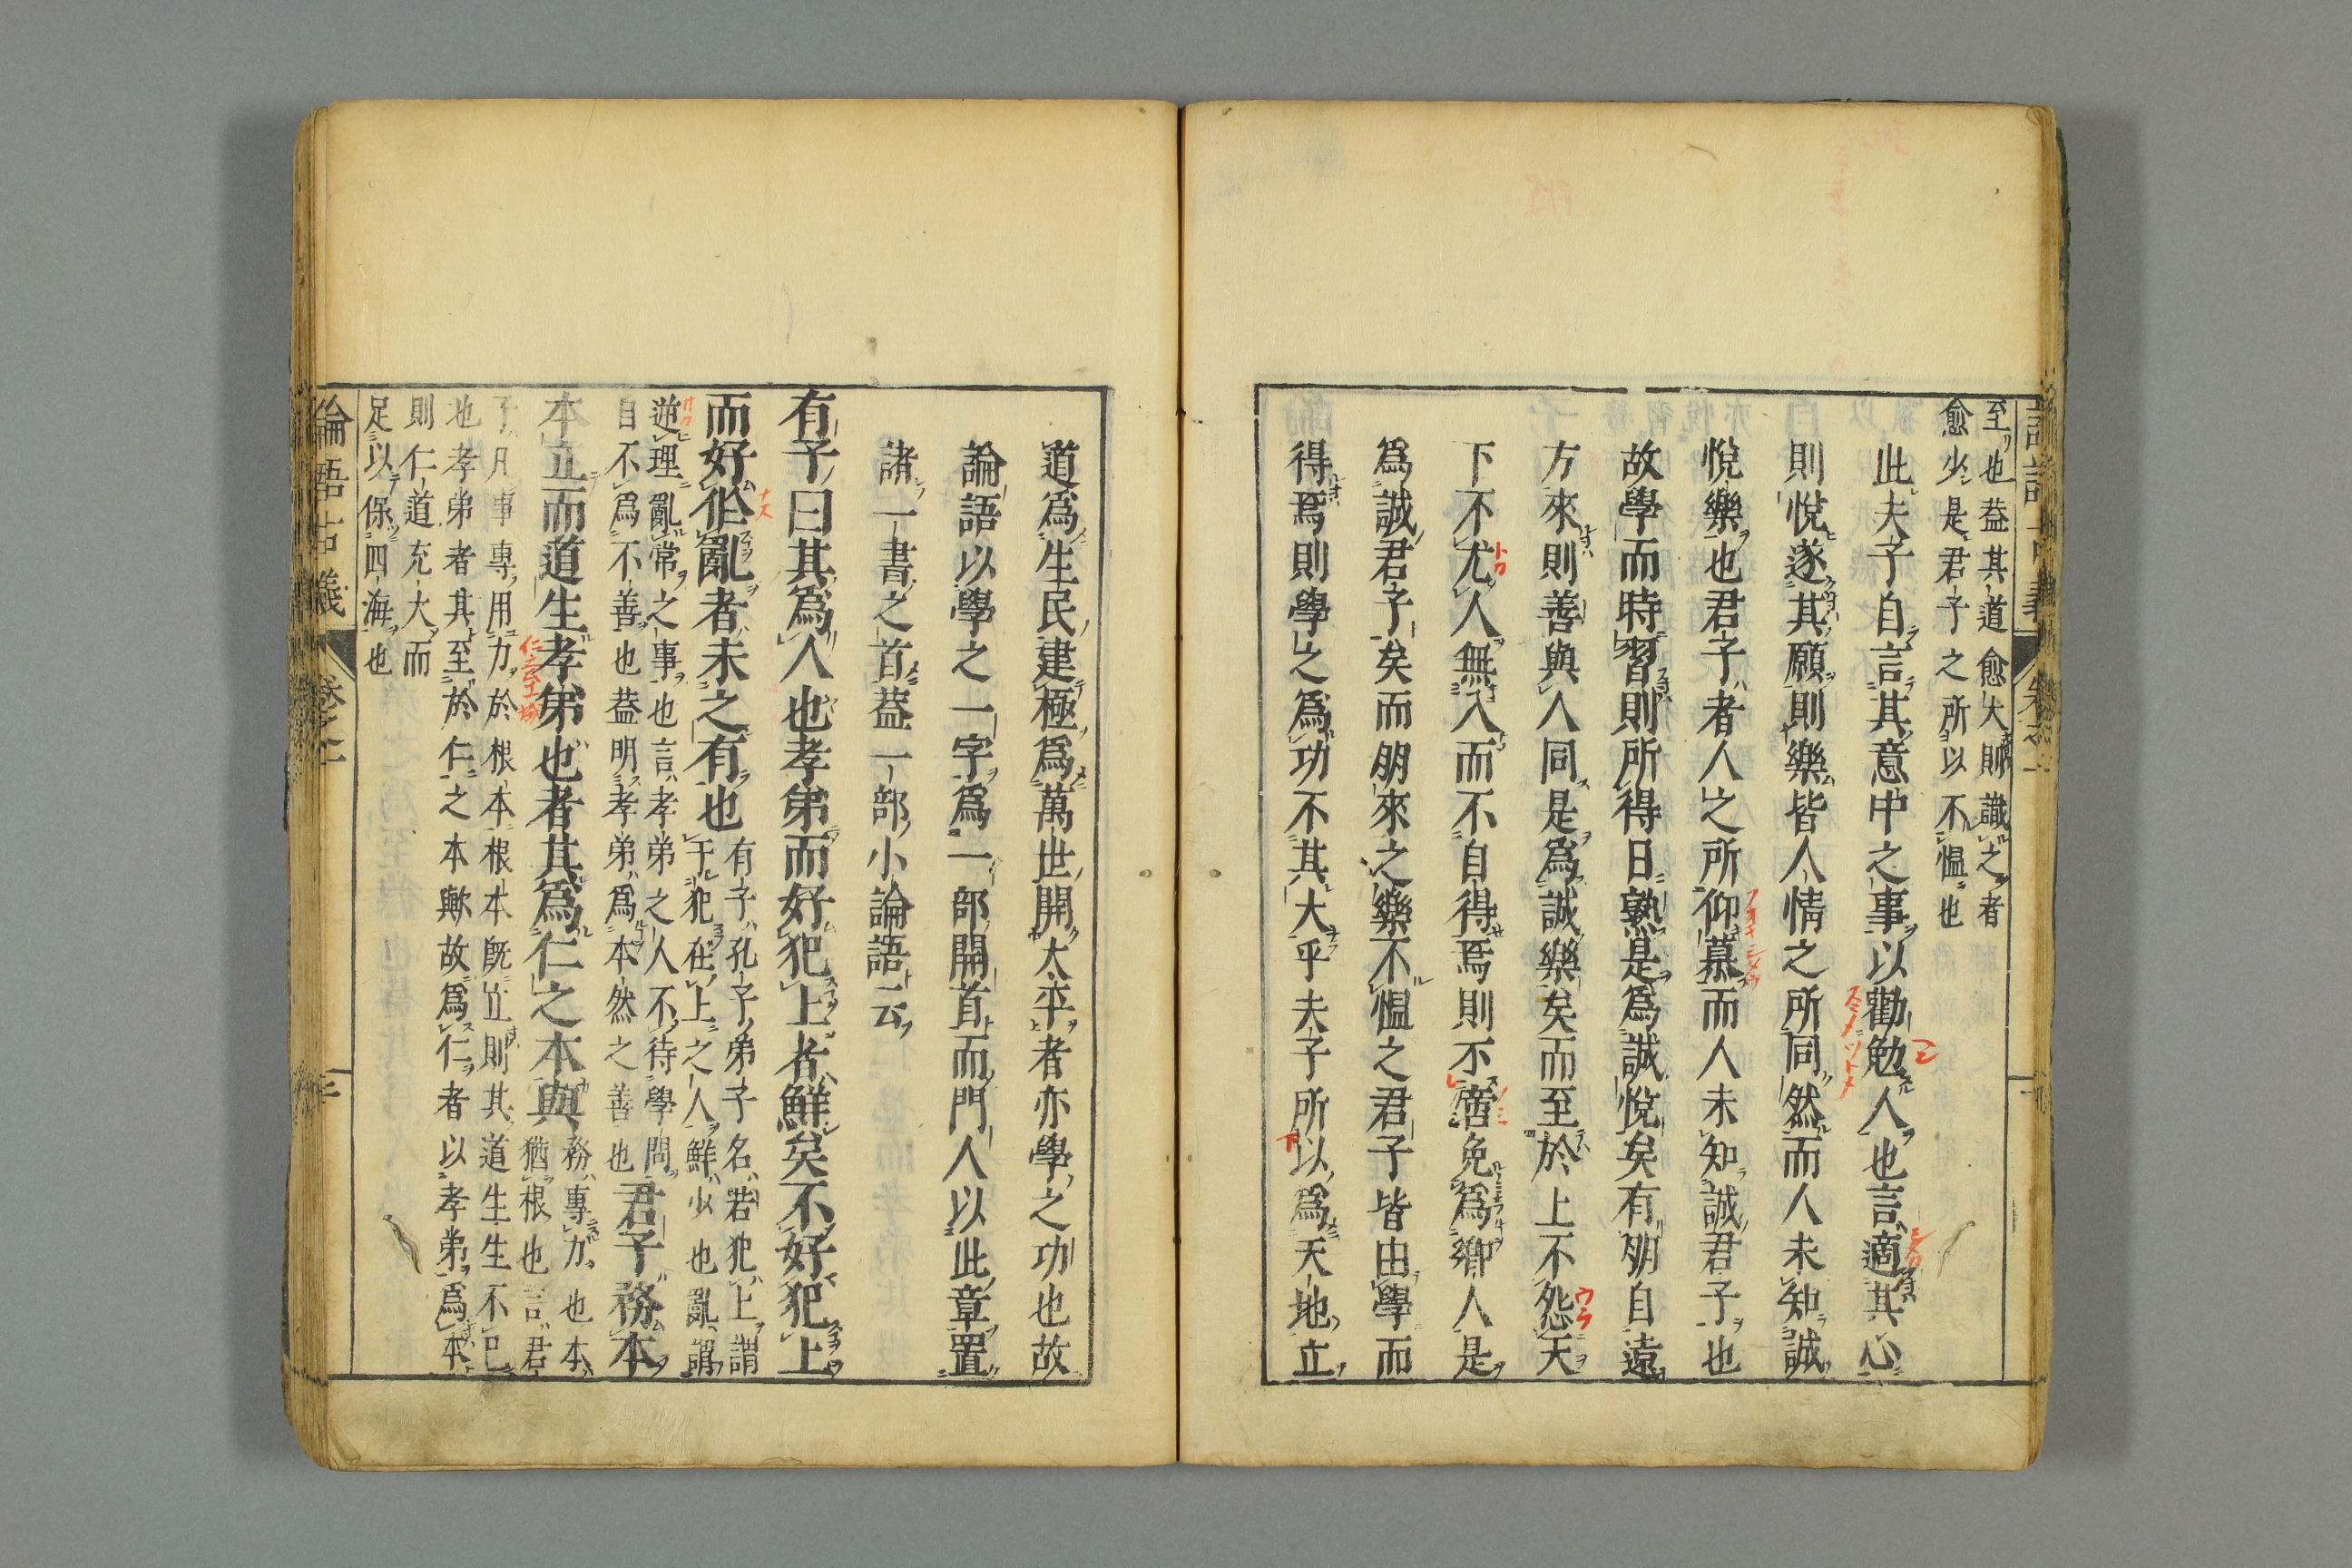 至也蓋其道愈大則識之者
愈少是君子之所以不慍也
此夫子自言其意中之事以勸勉人也言適其心
則悅遂其願則樂皆人情之所同然而人未知誠
悅樂也君子者人之所仰慕而人未知誠君子也
故學而時習則所得日熟是爲誠悅矣有朋自遠
方來則善與人同是爲誠樂矣而至於上不怨天
下不尤人無入而不自得焉則不啻免爲鄉人是
爲誠君子矣而朋來之樂不慍之君子皆由學而
得焉則學之爲功不其大乎夫子所以爲天地立
道爲生民建極爲萬世開大平者亦學之功也故
論語以學之一字爲一部開首而門人以此章置
諸一書之首蓋一部小論語云
有子曰其爲人也孝弟而好犯上者鮮矣不好犯上
而好作亂者未之有也
有子孔子弟子名若犯上謂
干犯在上之人鮮少也亂謂
逆理亂常之事也言孝弟之人不待學問
自不爲不善也蓋明孝弟爲本然之善也
君子務本
本立而道生孝弟也者其爲仁之本與
務專力也本
猶根也言君
子凡事專用力於根本根本既立則其道生生不已
也孝弟者其至於仁之本歟故爲仁者以孝弟爲本
則仁道充大而
足以保四海也
論語古義
卷之一